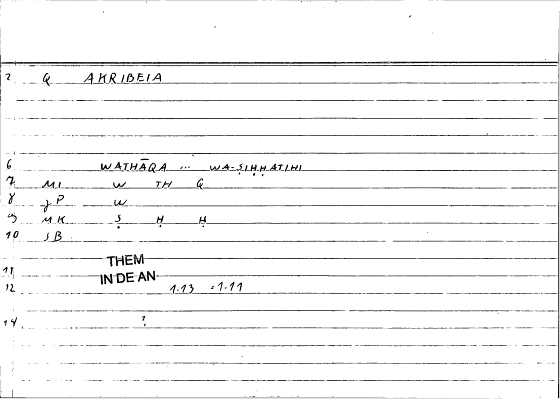 2 Q AKRIBEIA
6 WATHĀQA ... WA-ṢIḤḤATIHI
7 MI W TH Q
8 JP W
9 MK Ṣ Ḥ Ḥ
10 SB
11 THEM
IN DE AN
12 1.13 -1.11
14 ?